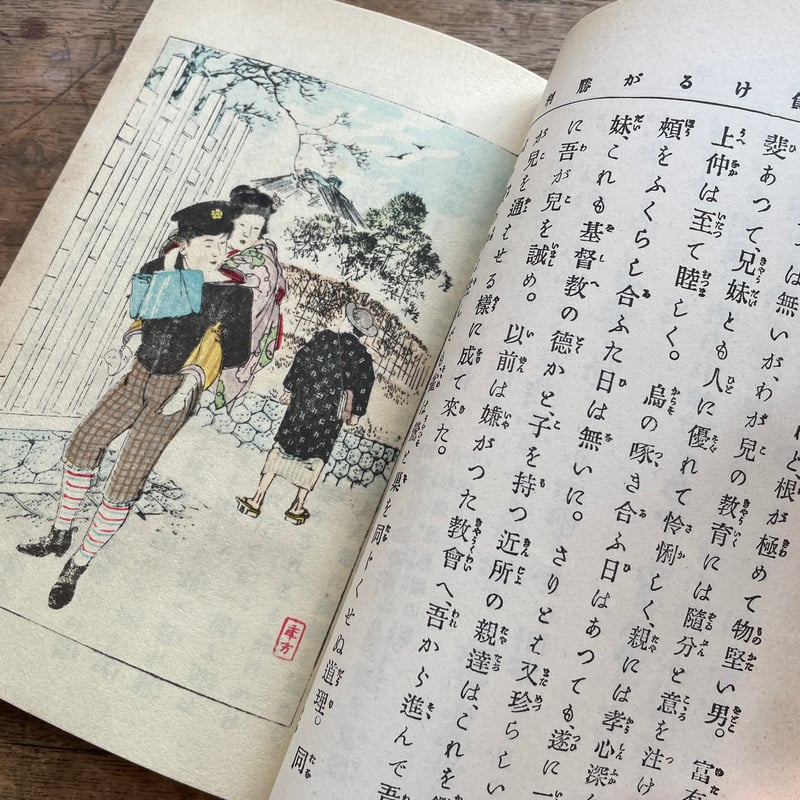 けるが勝
れど、根が極めて物堅い男。富有
は無いが、わが兒の教育には隨分と意を注け
斐あつて、兄妹とも人に優れて怜悧しく、親には孝心深
上仲は至て睦しく。烏の啄き合ふ日はあつても、遂に一
頰をふくらし合ふた日は無いに。さりとは又珍らしい
妹、これも基督教の德かと、子を持つ近所の親達は、これを
に吾が兒を誡め。以前は嫌がつた教會へ、吾から進んで吾
が兒を通はせる樣に成て來た。
巢を同じくせぬ道理。同
年方